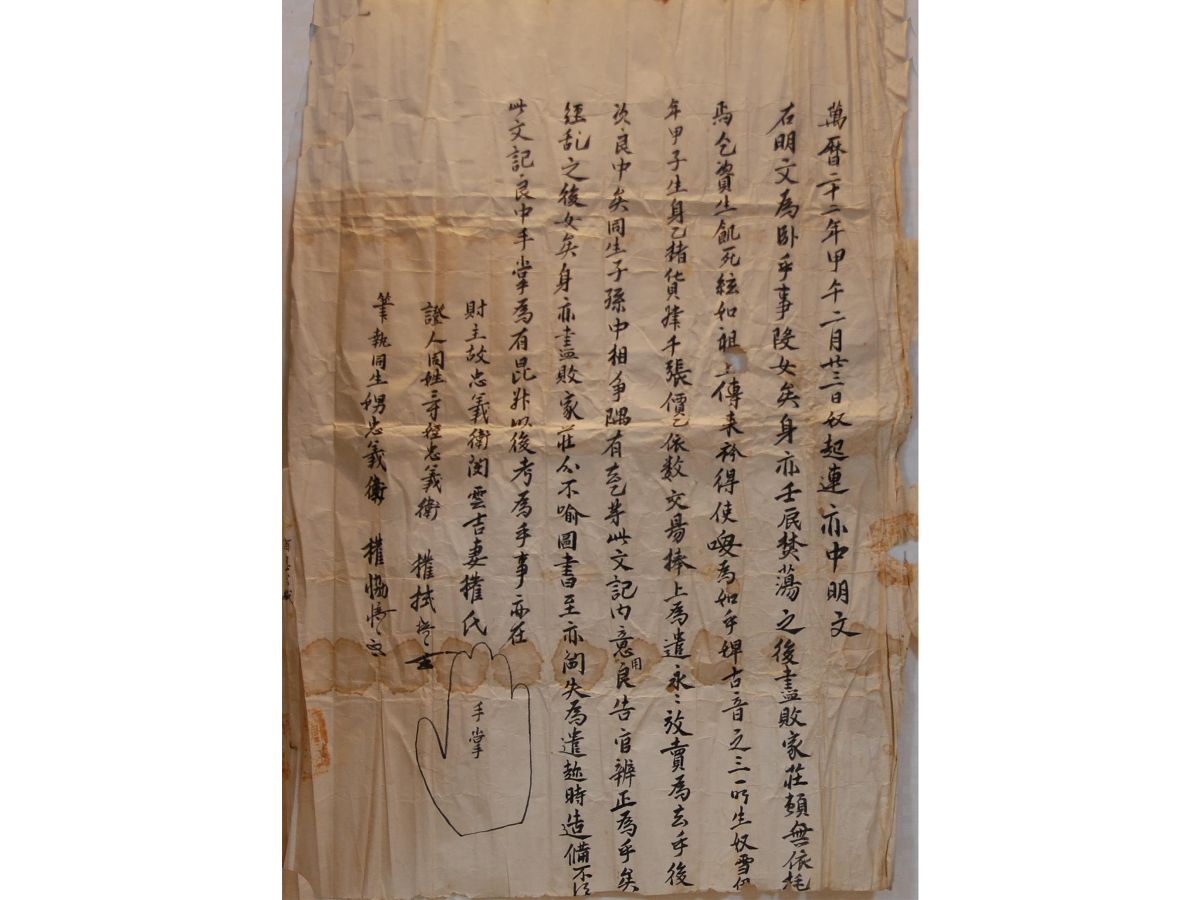 萬曆二十二年甲午二月廿三日奴起連亦中明文
右明文爲卧乎事段女矣身亦壬辰焚蕩之後盡敗家莊頼無依
焉乞資生飢死絃如祖上傳来衿得使喚爲如乎婢古音之三所生奴雪
年甲子生身乙楮貨肆千張價乙依數交易捧上爲遣永〻放賣爲去乎後
次良中矣同生子孫中相争隅有去乙等此文記内意用良告官辨正爲乎矣
經乱之後女矣身亦盡敗家莊分不喻圖書至亦閪失爲遣趂時造備不
此文記良中手掌爲有昆以後考爲乎事亦在
財主故忠義衛閔雲吉妻權氏
手掌
證人同姓三寸姪忠義衛 權拭
筆執同生娚忠義衛 權恊